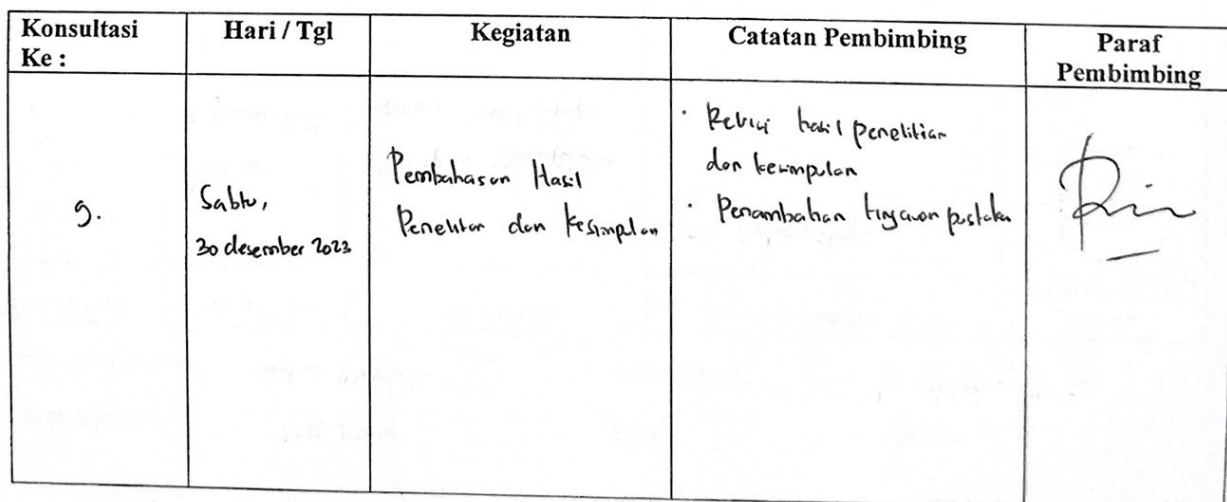 Konsultasi Ke :
Hari / Tgl
Kegiatan
Catatan Pembimbing
Paraf Pembimbing
9.
Sabtu,
30 desember 2023
Pembahasan Hasil
Penelitian dan Kesimpulan
· Revisi hasil penelitian
dan kesimpulan
· Penambahan tinjauan pustaka